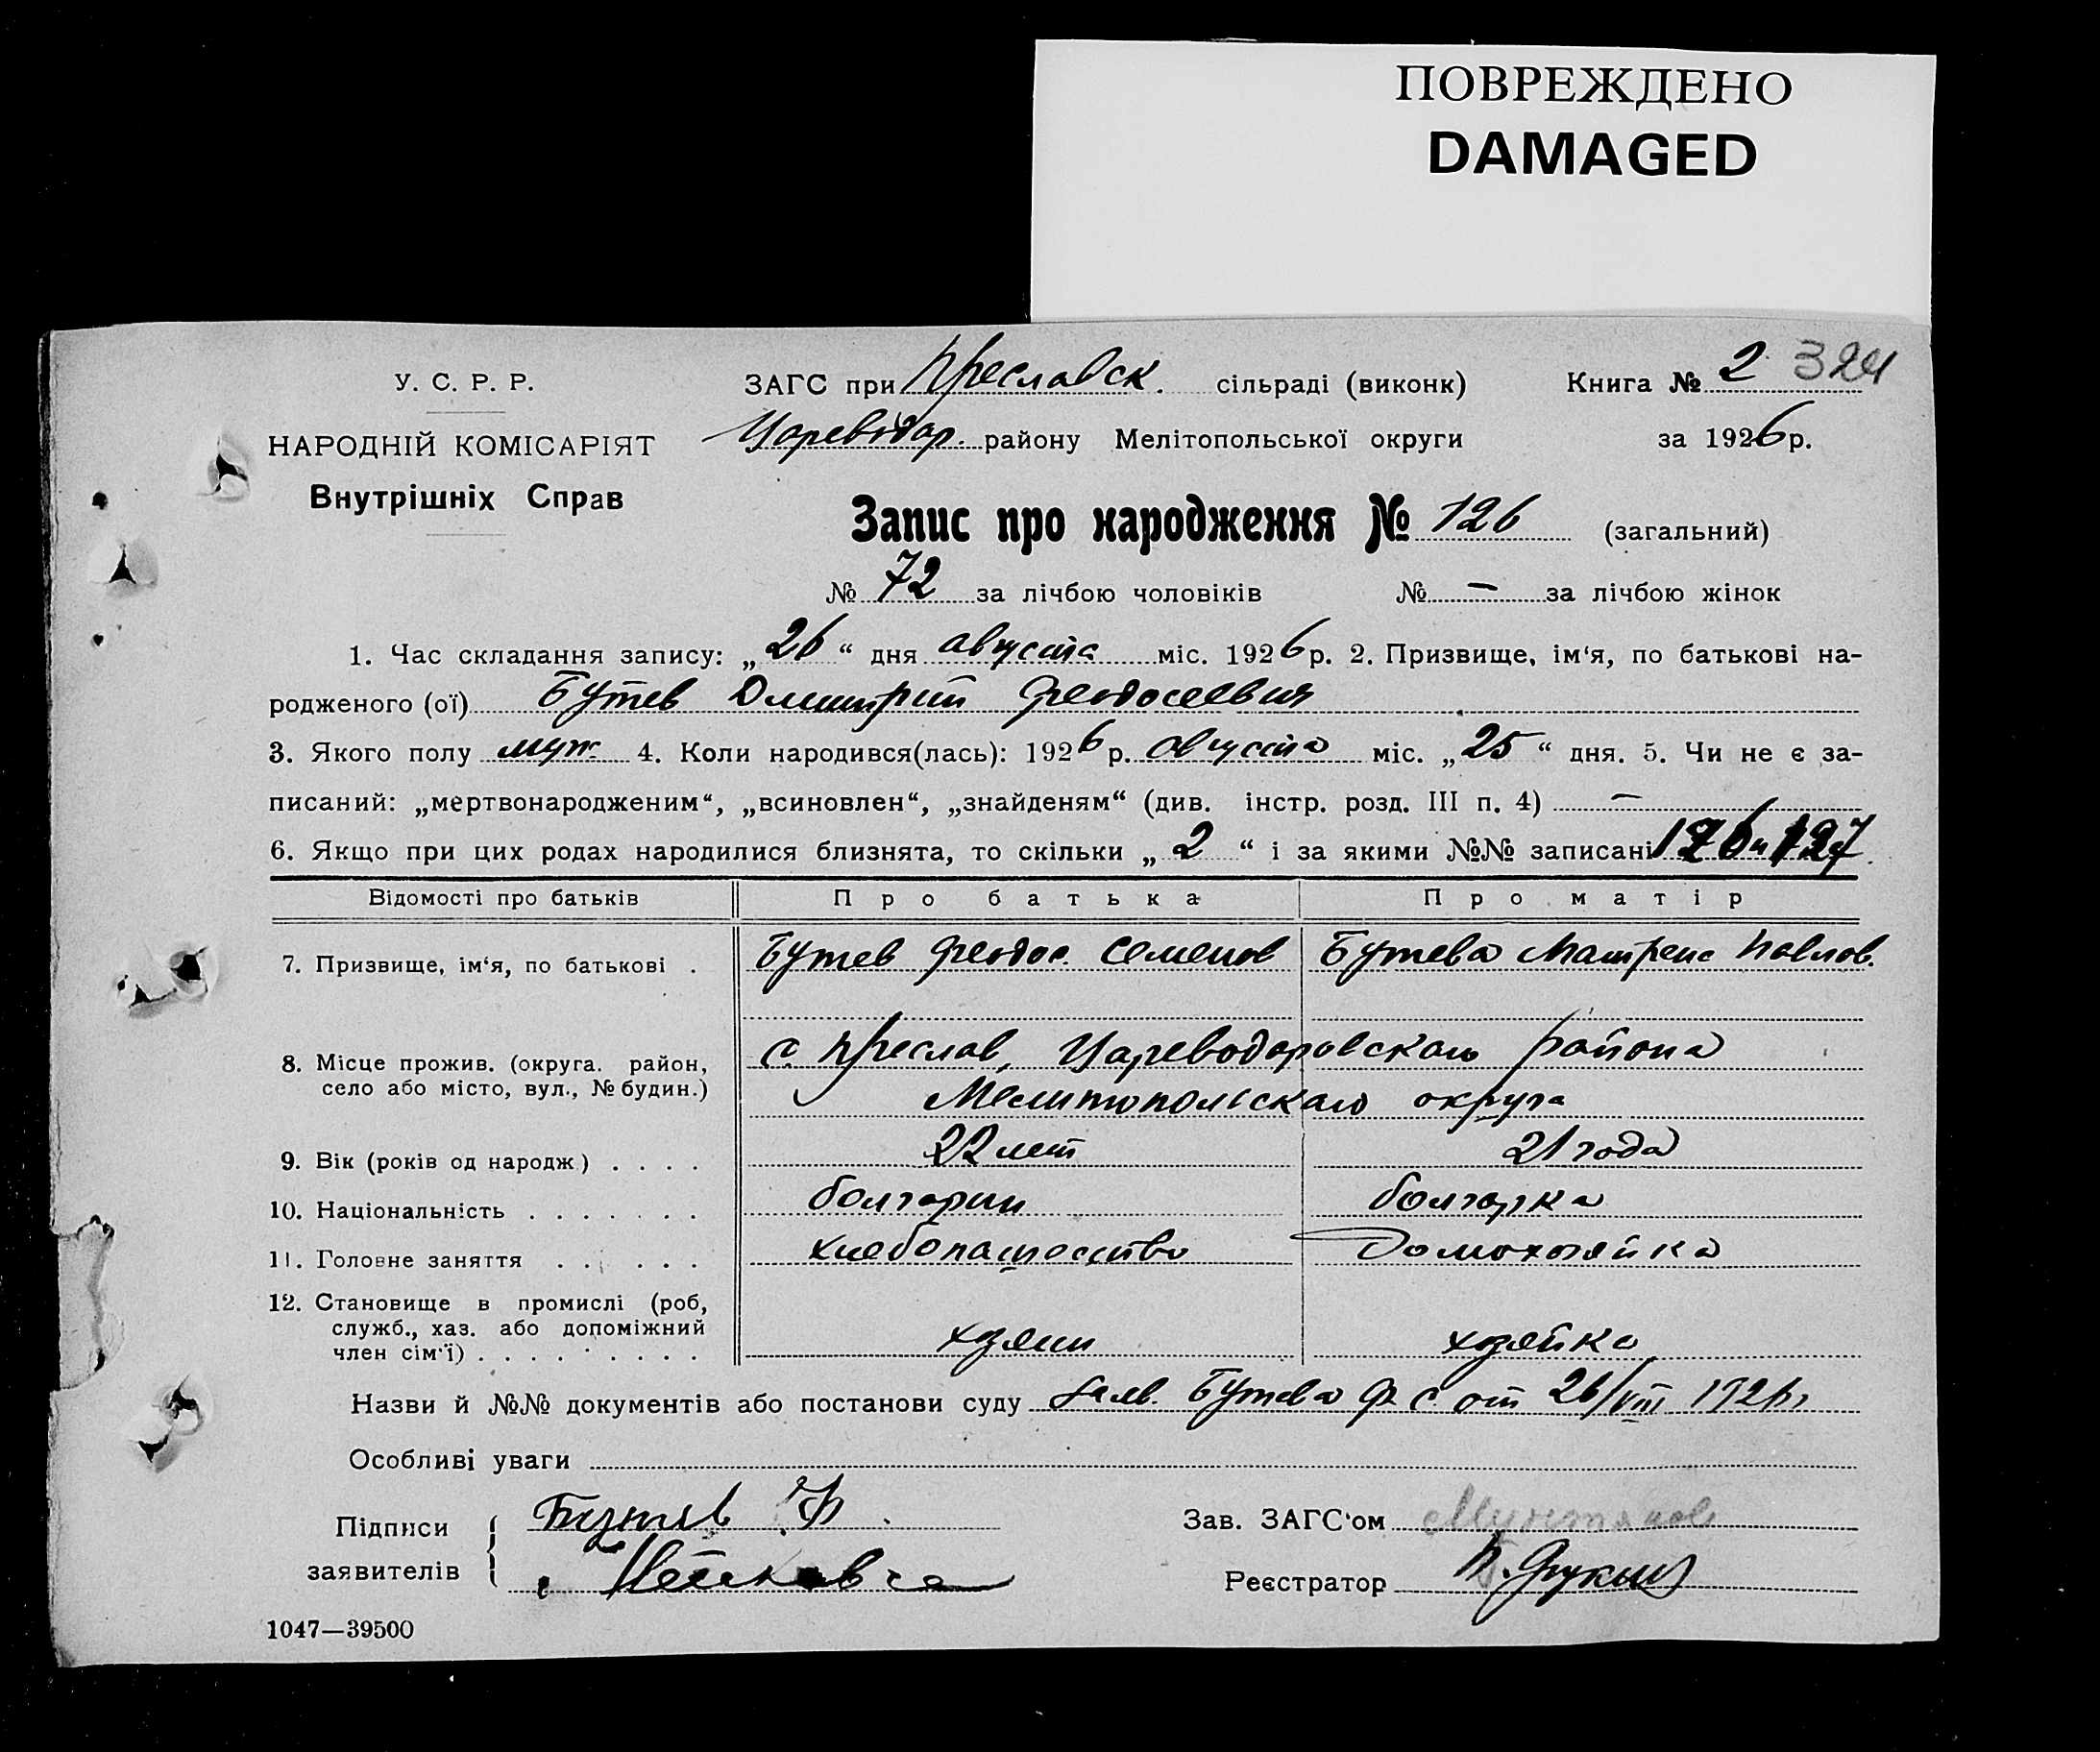 ПОВРЕЖДЕНО
DAMAGED
У. С. Р. Р.
НАРОДНІЙ КОМІСАРІЯТ
Внутрішніх Справ
ЗАГС при Преславск. сільраді (виконк)
Книга № 2 324
Цареводар. району Мелітопольської округи
за 1926 р.
Запис про народження № 126 (загальний)
№ 72 за лічбою чоловіків № — за лічбою жінок
1. Час складання запису: „26“ дня августа міс. 1926 р. 2. Призвище, ім‘я, по батькові на-
родженого (ої) Бутев Дмитрий Феодосеевич
3. Якого полу муж. 4. Коли народився(лась): 1926 р. августа міс. „25“ дня. 5. Чи не є за-
писаний: „мертвонародженим“, „всиновлен“, „знайденям“ (див. інстр. розд. III п. 4) —
6. Якщо при цих родах народилися близнята, то скільки „2“ і за якими №№ записані 126 и 127
Відомості про батьків Про батька Про матір
7. Призвище, ім‘я, по батькові . Бутев Феодос. Семенов Бутева Матрена Павлов.
8. Місце прожив. (округа. район, с. Преслав, Цареводаровского района
село або місто, вул., № будин.) Мелитопольского округа
9. Вік (років од народж) . . . . 22 лет 21 года
10. Національність . . . . . . . болгарин болгарка
11. Головне заняття . . . . . . хлебопашество Домохозяйка
12. Становище в промислі (роб,
служб., хаз. або допоміжний
член сім‘ї) . . . . . . . . . хозяин хозяйка
Назви й №№ документів або постанови суду Заяв. Бутева Ф С от 26/VIII 1926 г.
Особливі уваги
Підписи
заявителів
Бутев Ф.
Зав. ЗАГС‘ом
Реєстратор
1047—39500